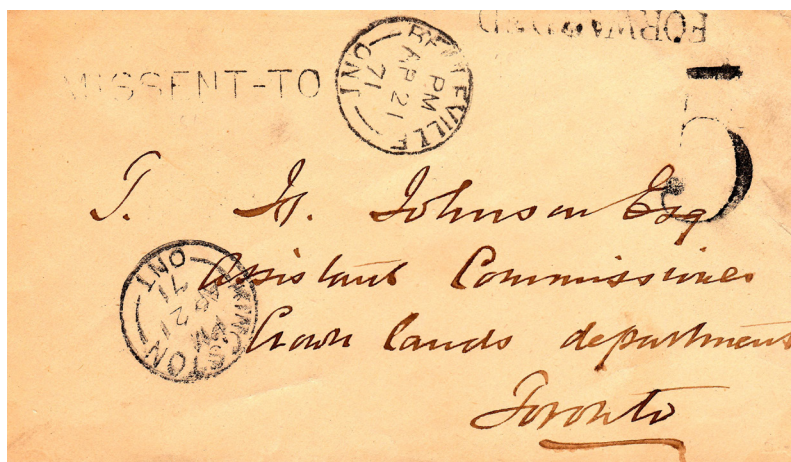 FORWARDED
MISSENT-TO
BELLEVILLE
PM
AP 21
71
ONT
5
T. H. Johnson Esq
Assistant Commissioner
Crown lands department
Toronto
KINGSTON
PM
AP 21
71
ONT